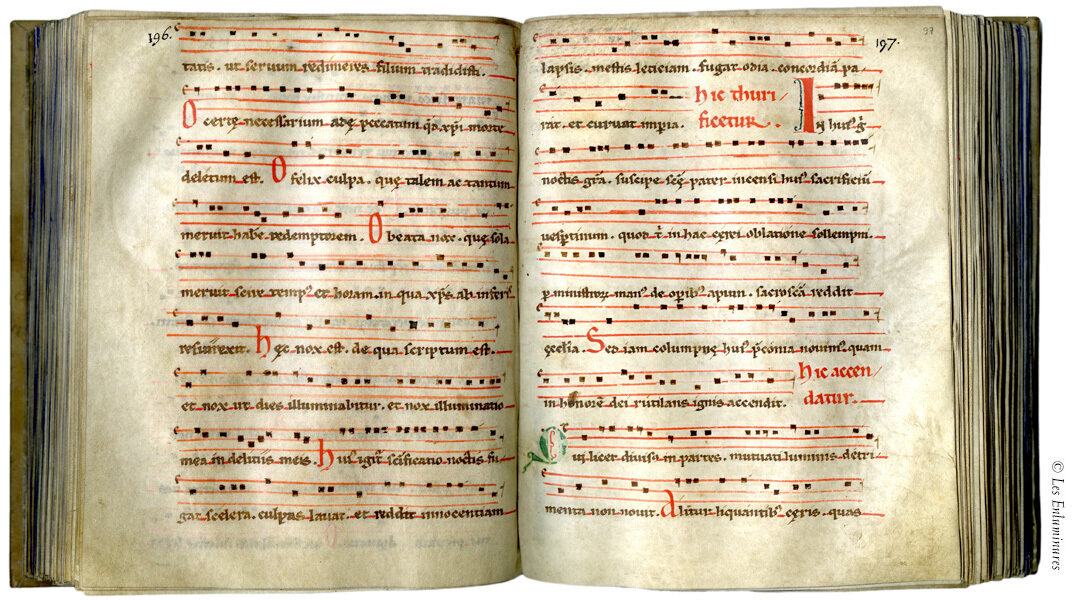 196.
tatis. ut seruum redimeres filium tradidisti.
O certę necessarium adę peccatum qđ xp̄i morte
deletum est. O felix culpa. quę talem ac tantum
meruit habe redemptorem. O beata nox. quę sola
meruit scire temp' et horam. in qua xp̄s ab inferis
resurrexit. hęc nox est. de qua scriptum est.
et nox ut dies illuminabitur. et nox illuminatio
mea in delitiis meis. hui' igit' scificatio noctis fu
gat scelera. culpas lauat. et reddit innocentiam
197.
37
lapsis. mestis leticiam. fugat odia. concordiā pa
rat. et curuat imperia. hic thuri
ficetur. In hui' g̃
noctis gr̄a. suscipe scē pater incensi hui' sacrificiū
uesptinum. quod t' in hac cęrei oblatione sollempni.
p ministror manus de operib' apum. sacroscā reddit
ęcclesia. Sed iam columpnę hui' p̄conia nouim' quam
in honore dei rutilans ignis accendit. hic accen
datur.
Qui licet diuisus in partes. mutuati luminis detri
menta non nouit. Alitur liquantib' cęris. quas
© Les Enluminures